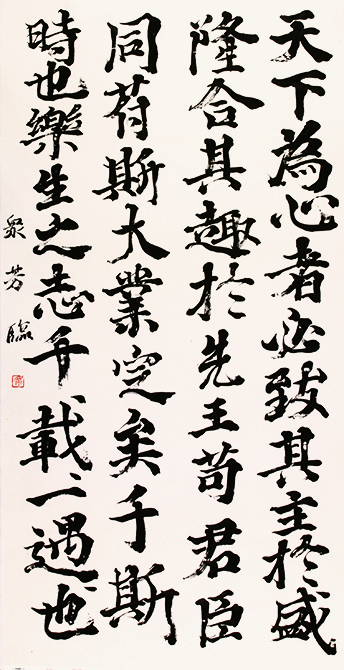 天下為心者必致其主於盛
隆合其趣於先王苟君臣
同苻斯大業定矣于斯
時也樂生之志千載一遇也
聚芳臨